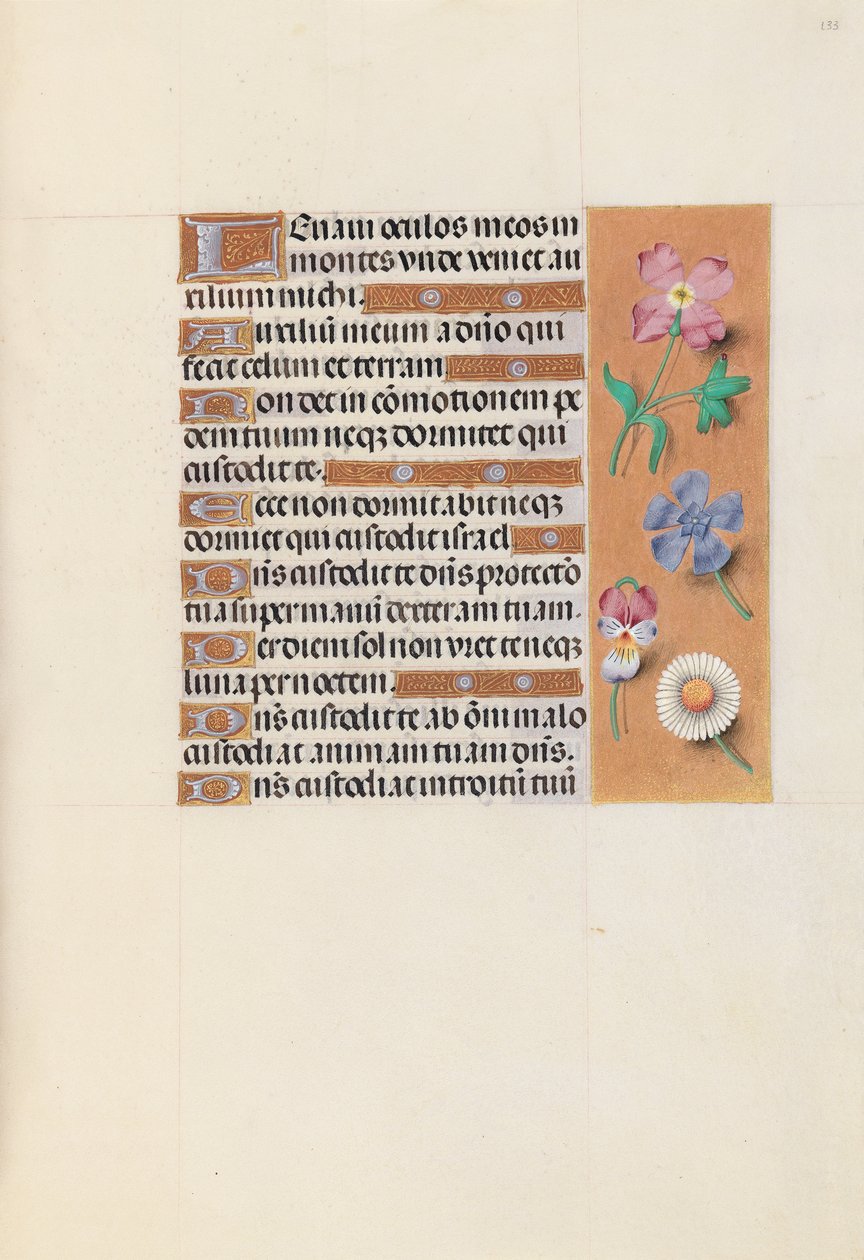 133
Leuaui oculos meos in
montes vnde veniet au
xilium michi.
Auxiliū meum a dño qui
fecit celum et terram.
Non det in cōmotionem pe
dem tuum neqꝫ dormitet qui
custodit te.
Ecce non dormitabit neqꝫ
dormiet qui custodit israel
Dñs custodit te dñs protectō
tua super manū dexteram tuam.
Per diem sol non vret te neqꝫ
luna per noctem.
Dñs custodit te ab ōni malo
custodiat animam tuam dñs.
Dñs custodiat introitū tuū